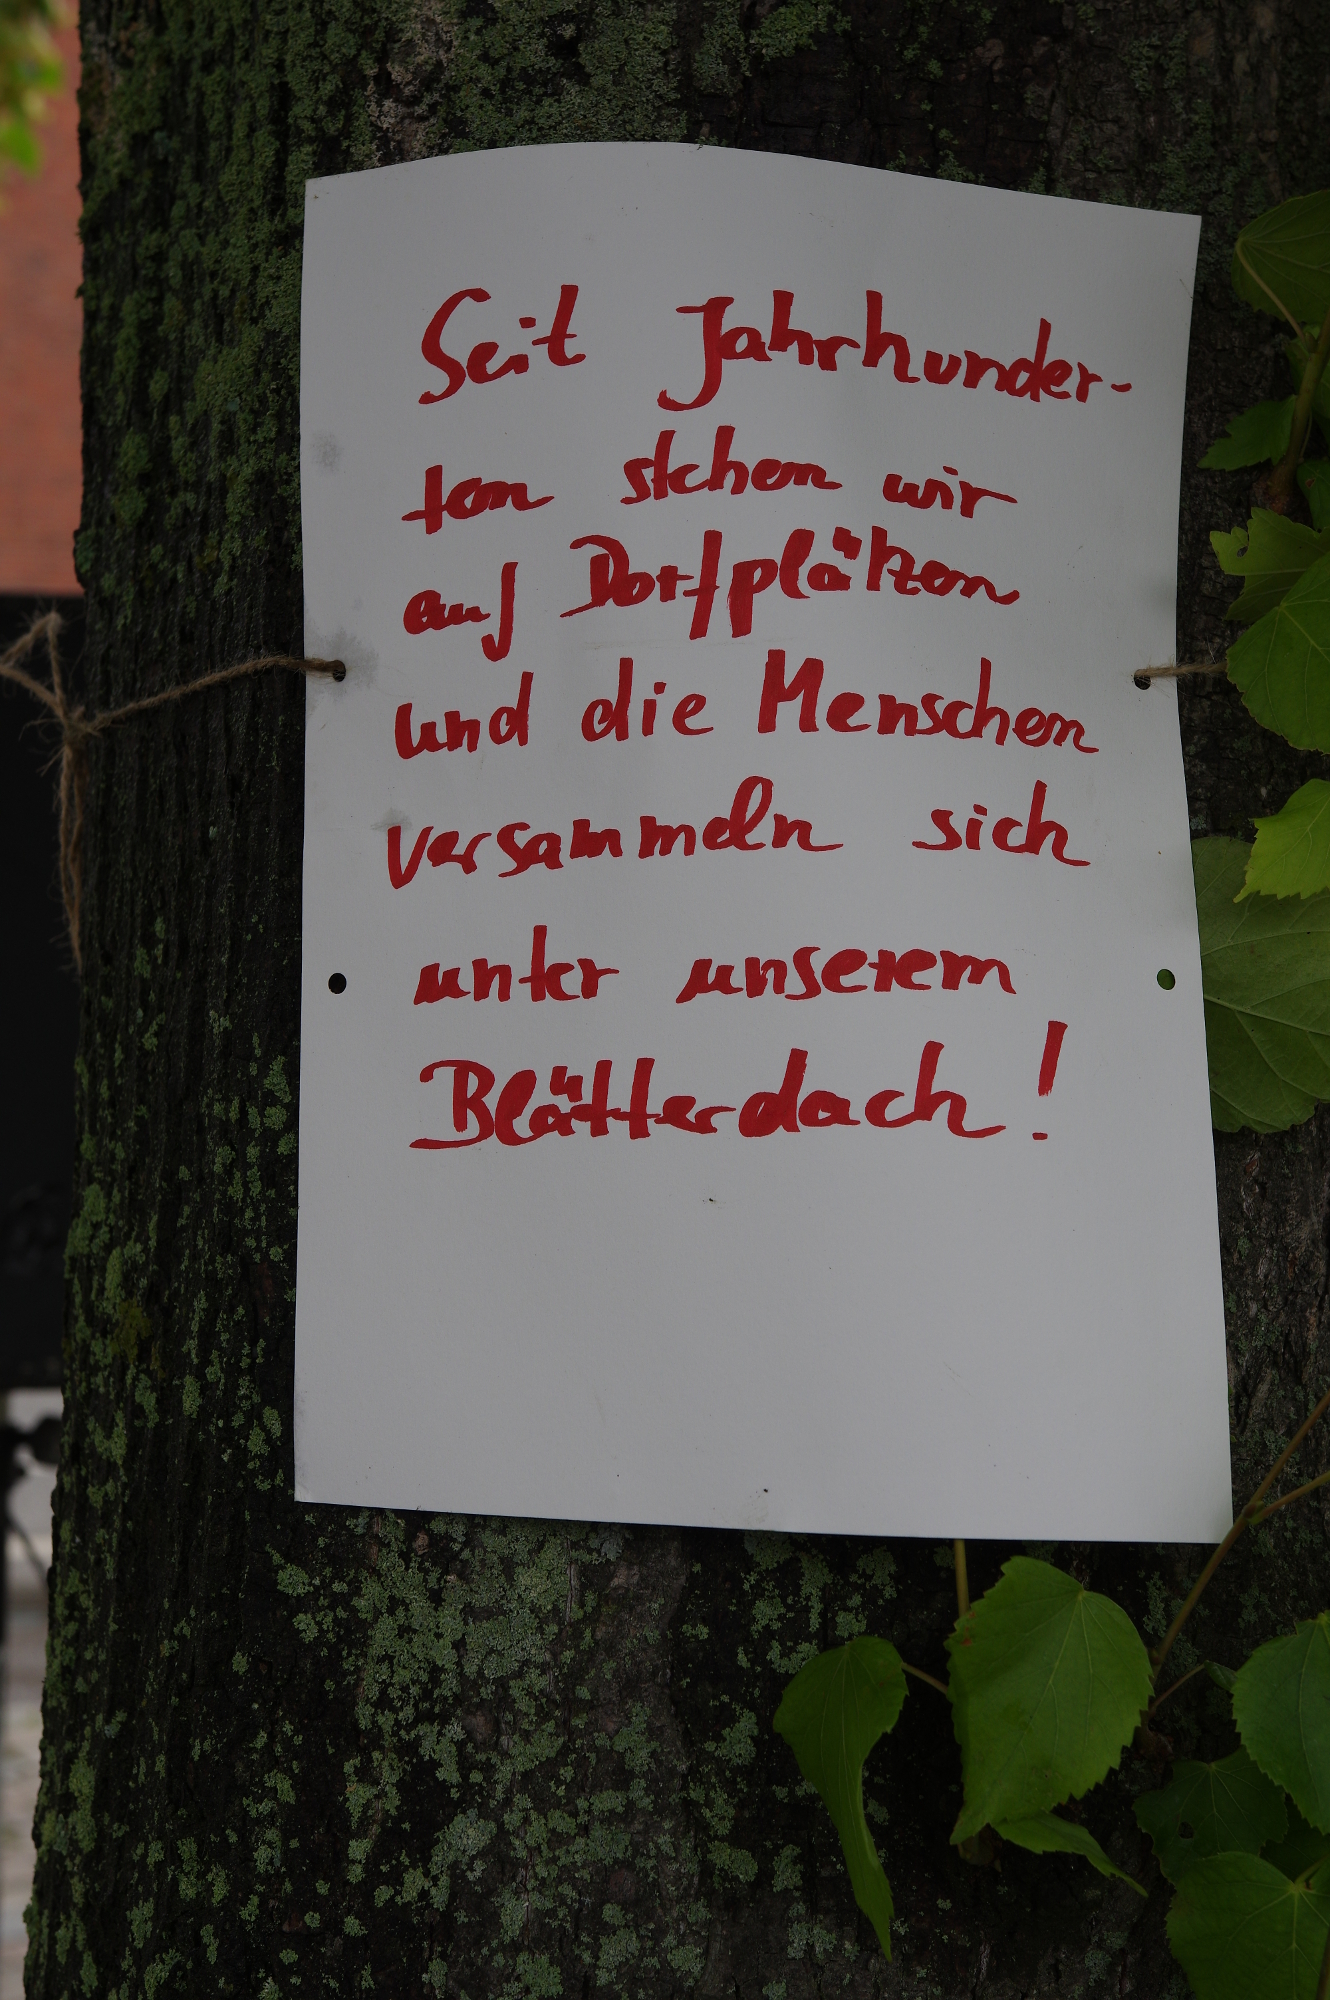 Seit Jahrhunder-
ten stehen wir
auf Dorfplätzen
und die Menschen
versammeln sich
unter unserem
Blätterdach!